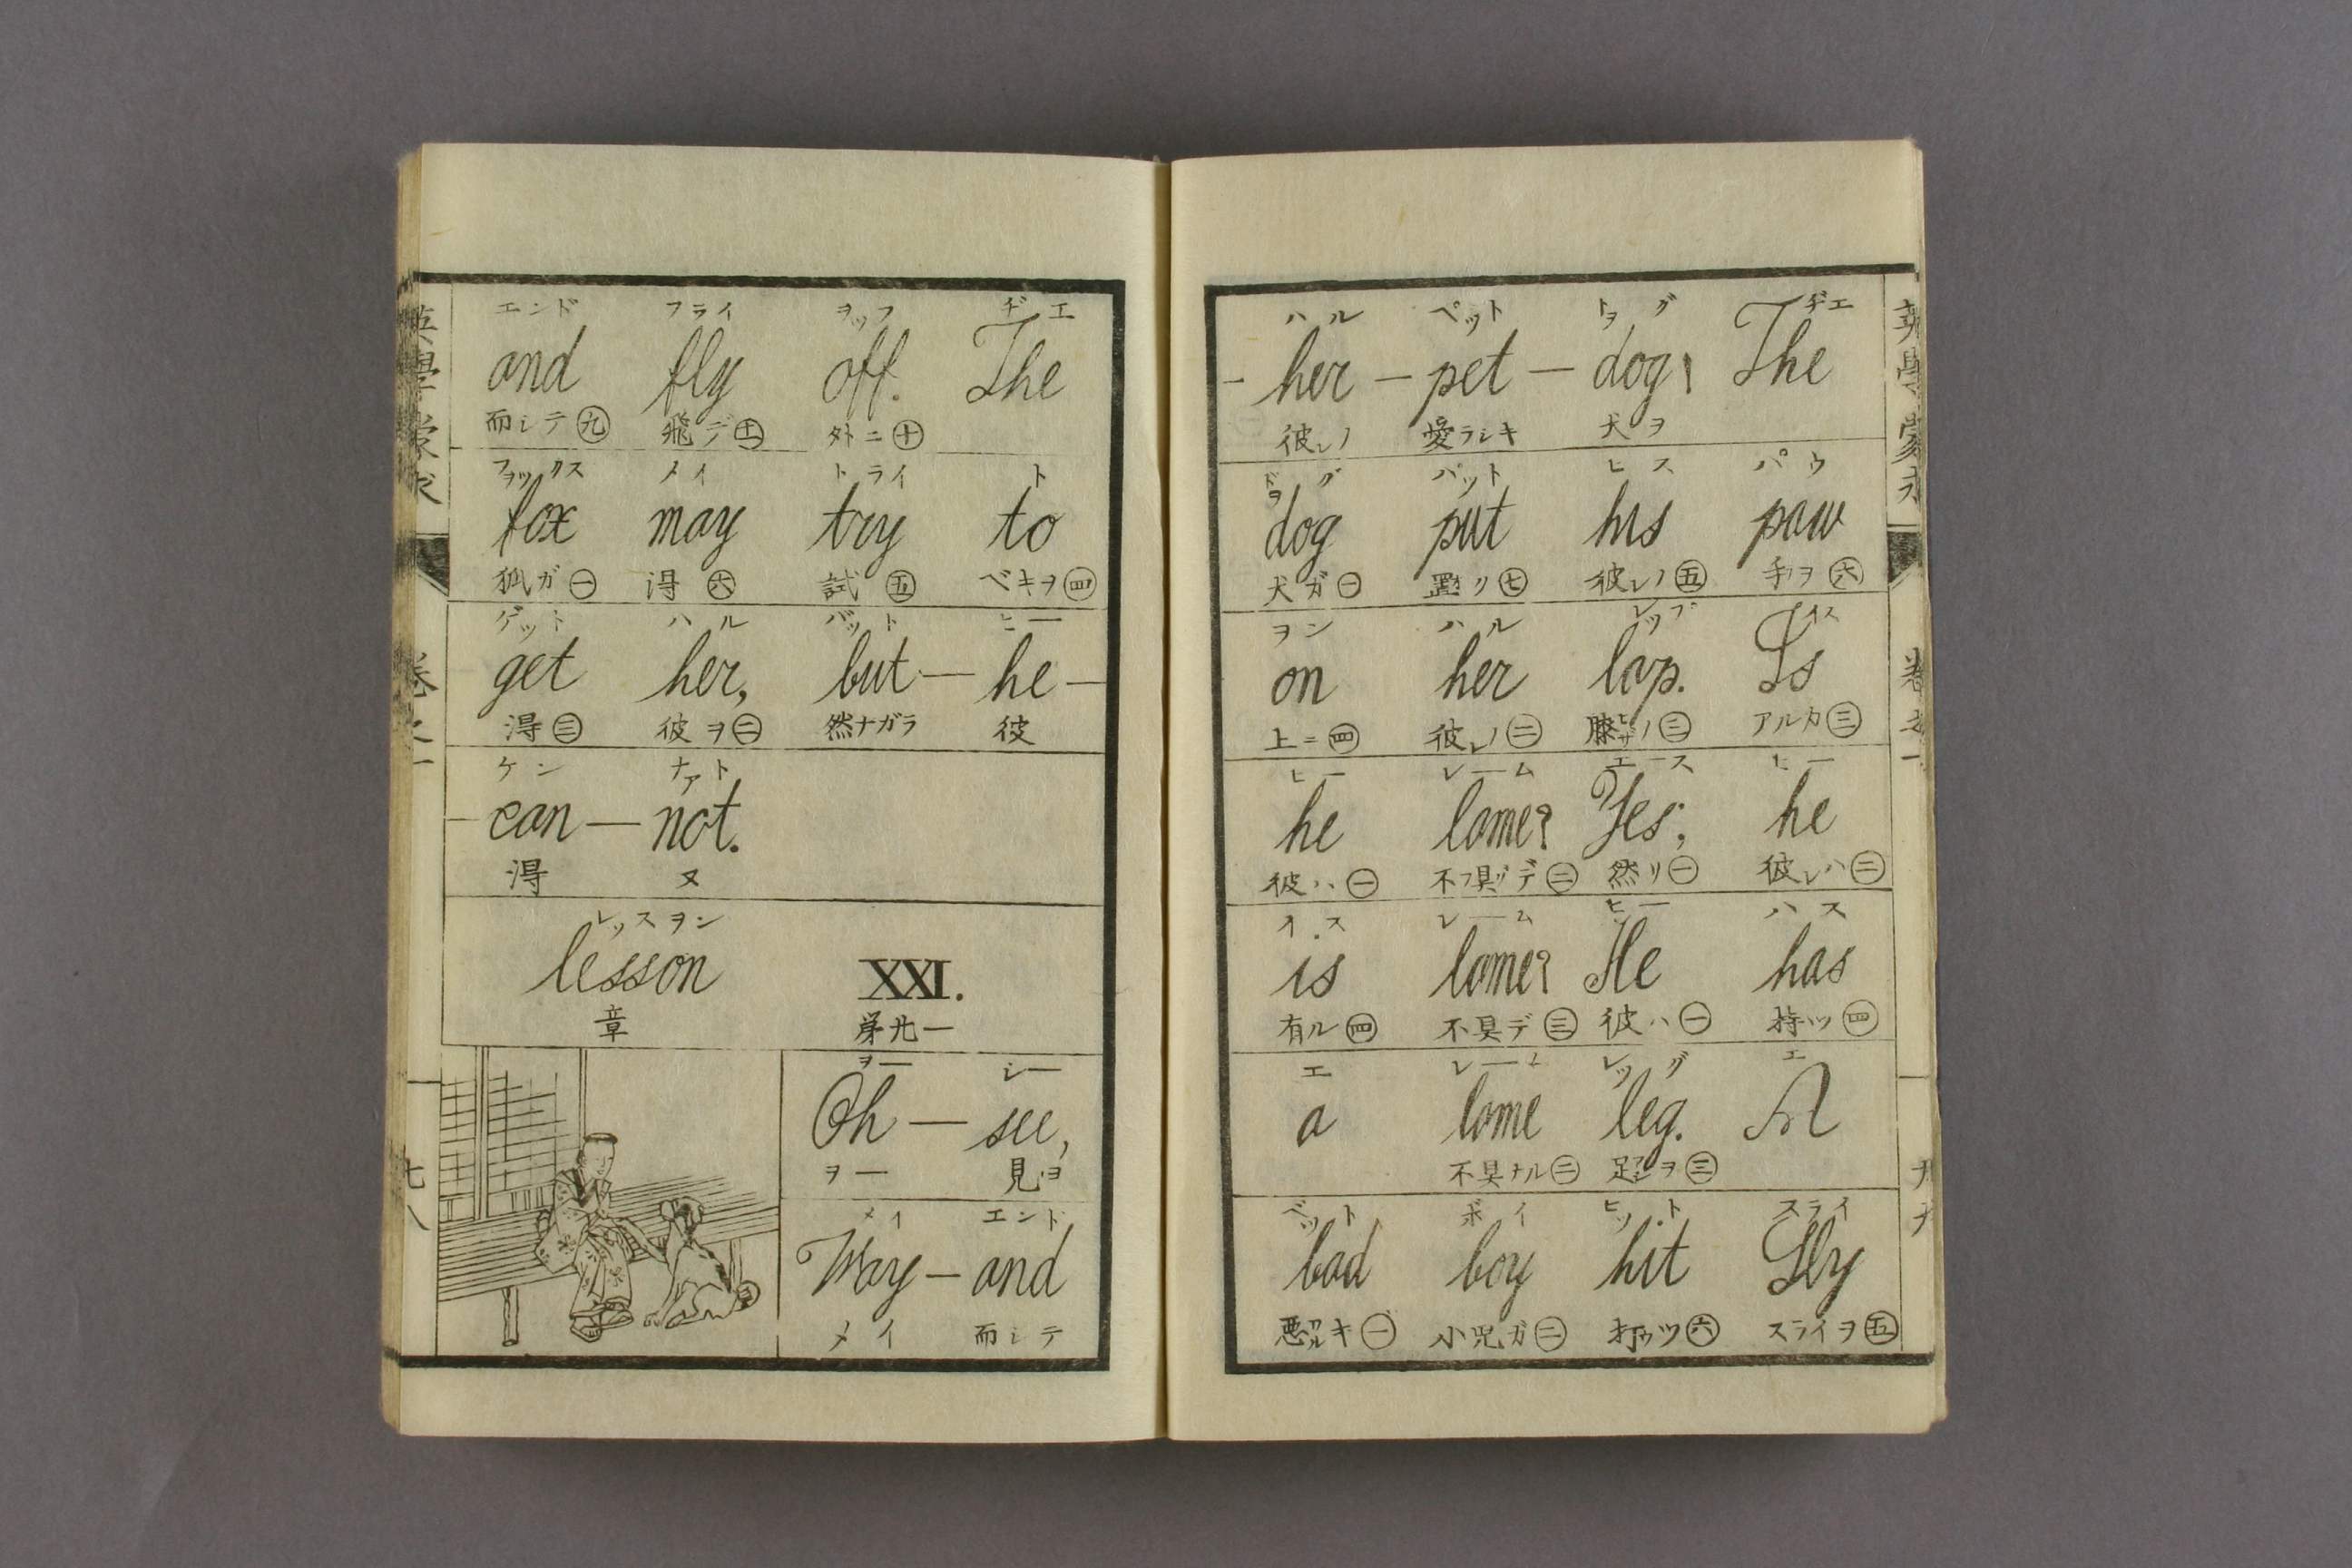 エンド フライ ヲッフ ヂエ
and fly off. The
而シテ㊈ 飛デ 外ニ㊉
フヲックス メイ トライ ト
fox may try to
狐ガ㊀ 得㊅ 試㊄ ベキヲ㊃
ゲット ハル バット ヒー
get her, but — he —
得㊂ 彼ヲ㊁ 然ナガラ 彼
ケン ナアト
— can — not.
得 又
レッスヲン
lesson XXI.
章 第廿一
ヲー シー
Oh — see,
ヲー 見ヨ
メイ エンド
May — and
メイ 而シテ
ハル ペット トヲグ ヂエ
— her — pet — dog! The
彼レノ 愛ラシキ 犬ヲ
ドヲグ パット ヒス パウ
dog put his paw
犬ガ㊀ 置リ㊆ 彼レノ㊄ 手ヲ㊅
ヲン ハル レップ イス
on her lap. Is
上ニ㊃ 彼レノ㊁ 膝ヒザノ㊂ アルカ㊂
ヒー レーム エース ヒー
he lame? Yes; he
彼ハ㊀ 不具デ㊁ 然リ㊀ 彼レハ㊁
イス レーム ヒー ハス
is lame? He has
有ル㊃ 不具デ㊂ 彼ハ㊀ 持ツ㊃
エ レーム レッグ エ
a lame leg. A
不具ナル㊁ 足ヲ㊂
ベット ボイ ヒット スライ
bad boy hit Sly
悪ワルキ㊀ 小児ガ㊁ 打ウツ㊅ スライヲ㊄